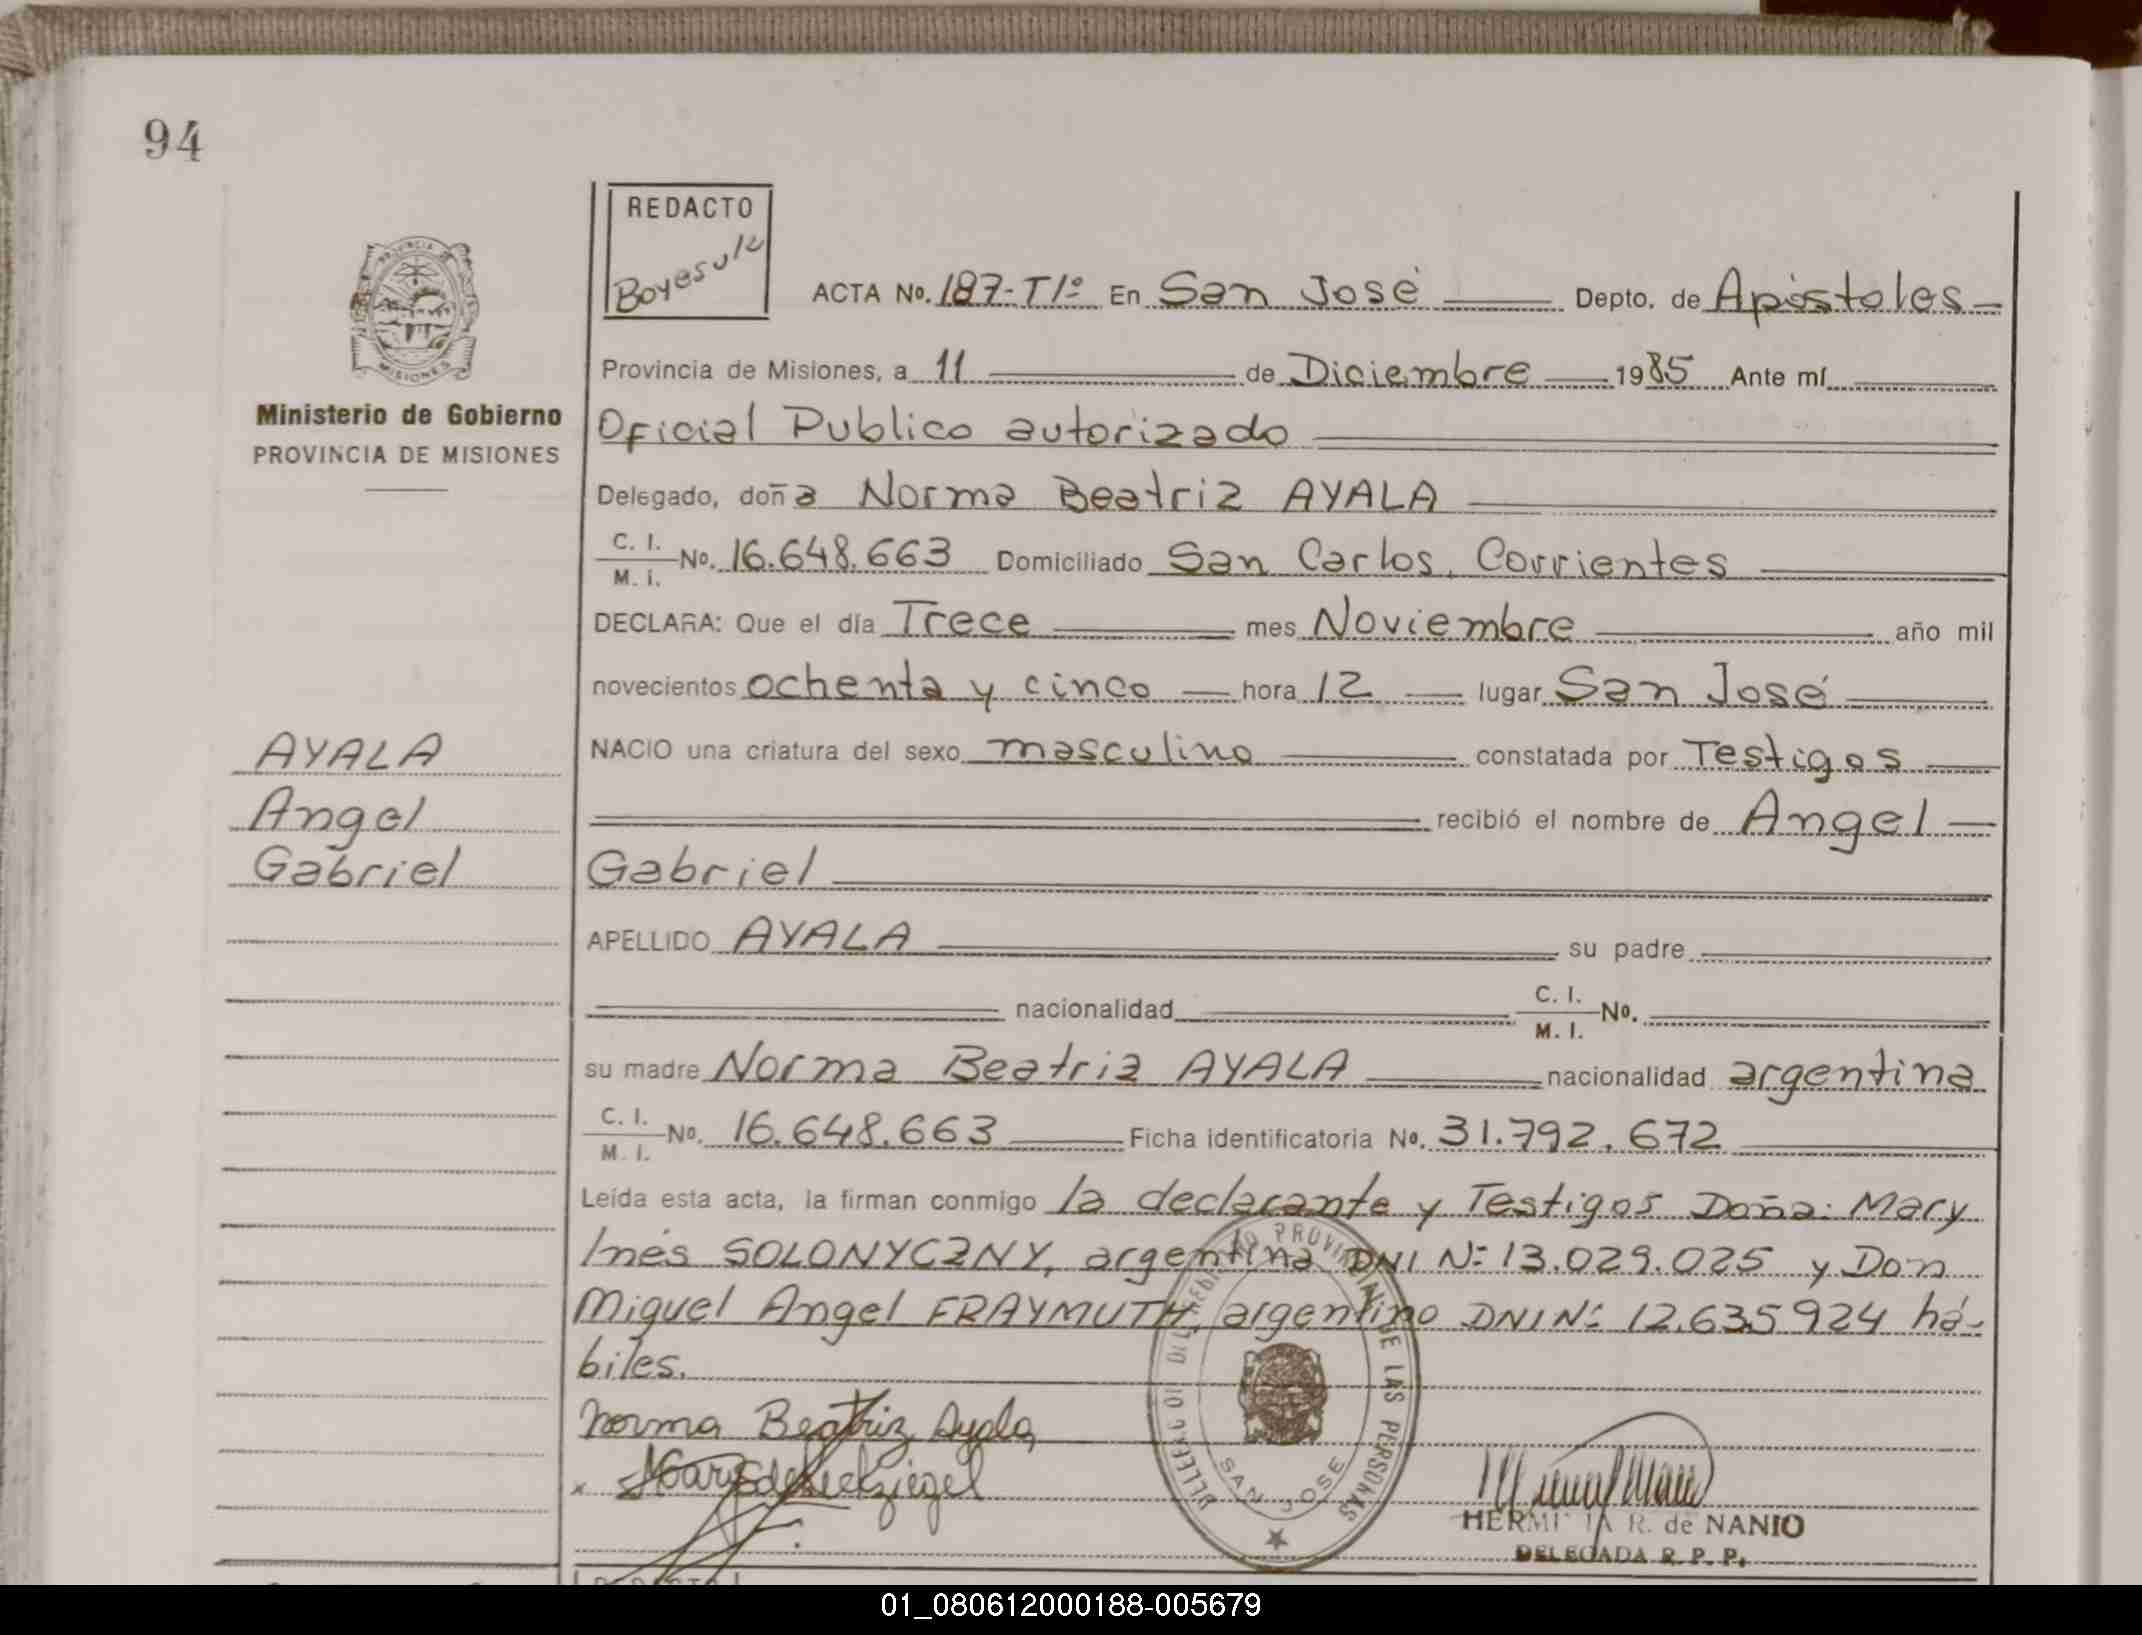 94
REDACTO
Boyesuk
ACTA No. 187-T1º En San José Depto. de Apóstoles
PROVINCIA
MISIONES
Provincia de Misiones, a 11 de Diciembre 1985 Ante mí
Ministerio de Gobierno
PROVINCIA DE MISIONES
Oficial Publico autorizado
Delegado, doña Norma Beatriz AYALA
C. I.
M. I. No. 16.648.663 Domiciliado San Carlos. Corrientes
DECLARA: Que el día Trece mes Noviembre año mil
novecientos ochenta y cinco hora 12 lugar San José
AYALA
Angel
Gabriel
NACIO una criatura del sexo masculino constatada por Testigos
recibió el nombre de Angel
Gabriel
APELLIDO AYALA su padre
nacionalidad C. I.
M. I. No.
su madre Norma Beatriz AYALA nacionalidad argentina
C. I.
M. I. No. 16.648.663 Ficha identificatoria No. 31.792.672
Leída esta acta, la firman conmigo la declarante y Testigos Doña: Mary
Inés SOLONYCZNY, argentina DNI Nº 13.029.025 y Don
Miguel Angel FRAYMUTH, argentino DNI Nº 12.635924 há-
biles.
Norma Beatriz Ayala
PROVINCIAL DE LAS PERSONAS
SAN JOSE
HERMI R. de NANIO
DELEGADA R. P. P.
01_080612000188-005679